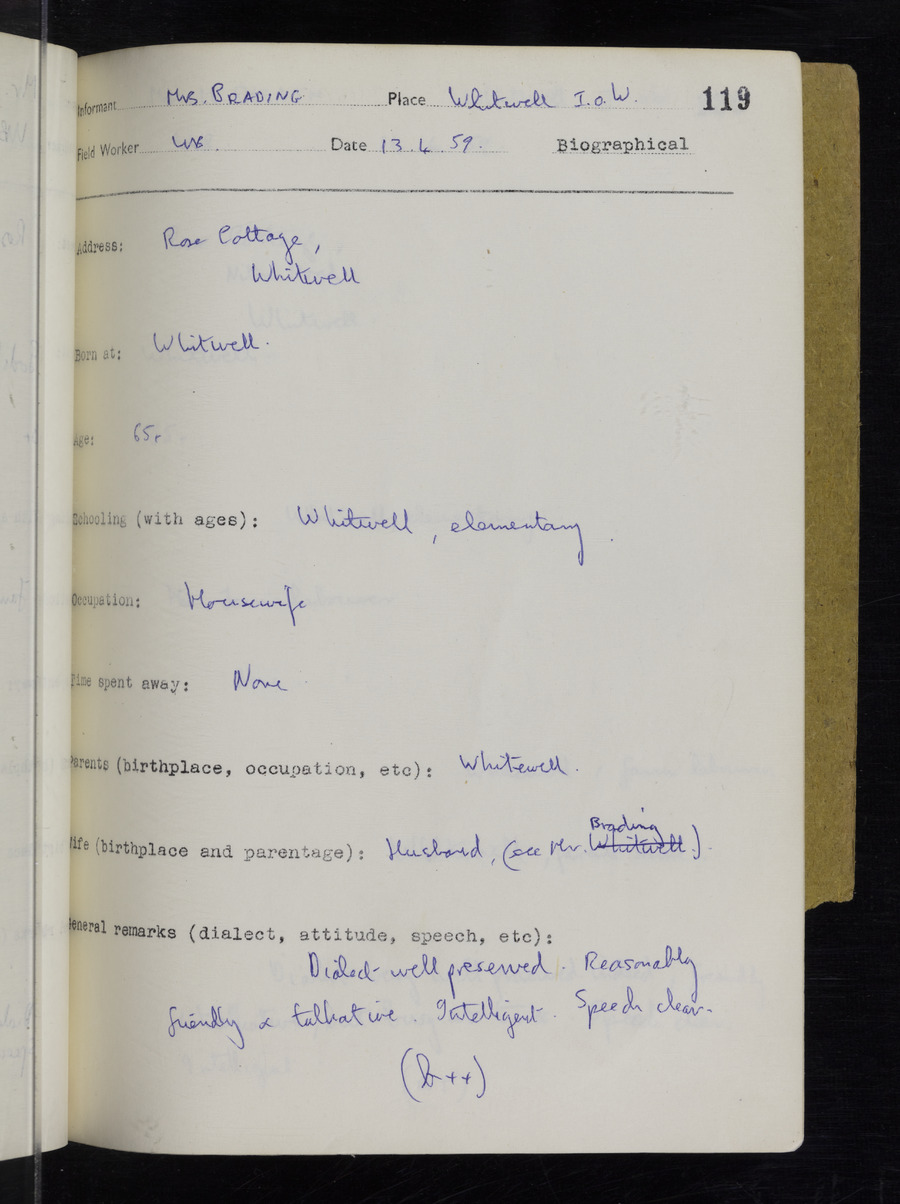 Informant Mrs. BRADING Place Whitwell I.o.W. 119
Field Worker Date 13.4.59. Biographical
Address: Rose Cottage,
Whitwell
Born at: Whitwell.
Age: 65.
Schooling (with ages): Whitwell, elementary.
Occupation: Housewife
Time spent away: None
Parents (birthplace, occupation, etc): Whitewell.
Brading
Wife (birthplace and parentage): Husband, (see Mr. Whitwell.)
General remarks (dialect, attitude, speech, etc):
Dialect well preserved. Reasonably
friendly & talkative. Intelligent. Speech clear.
(b++)